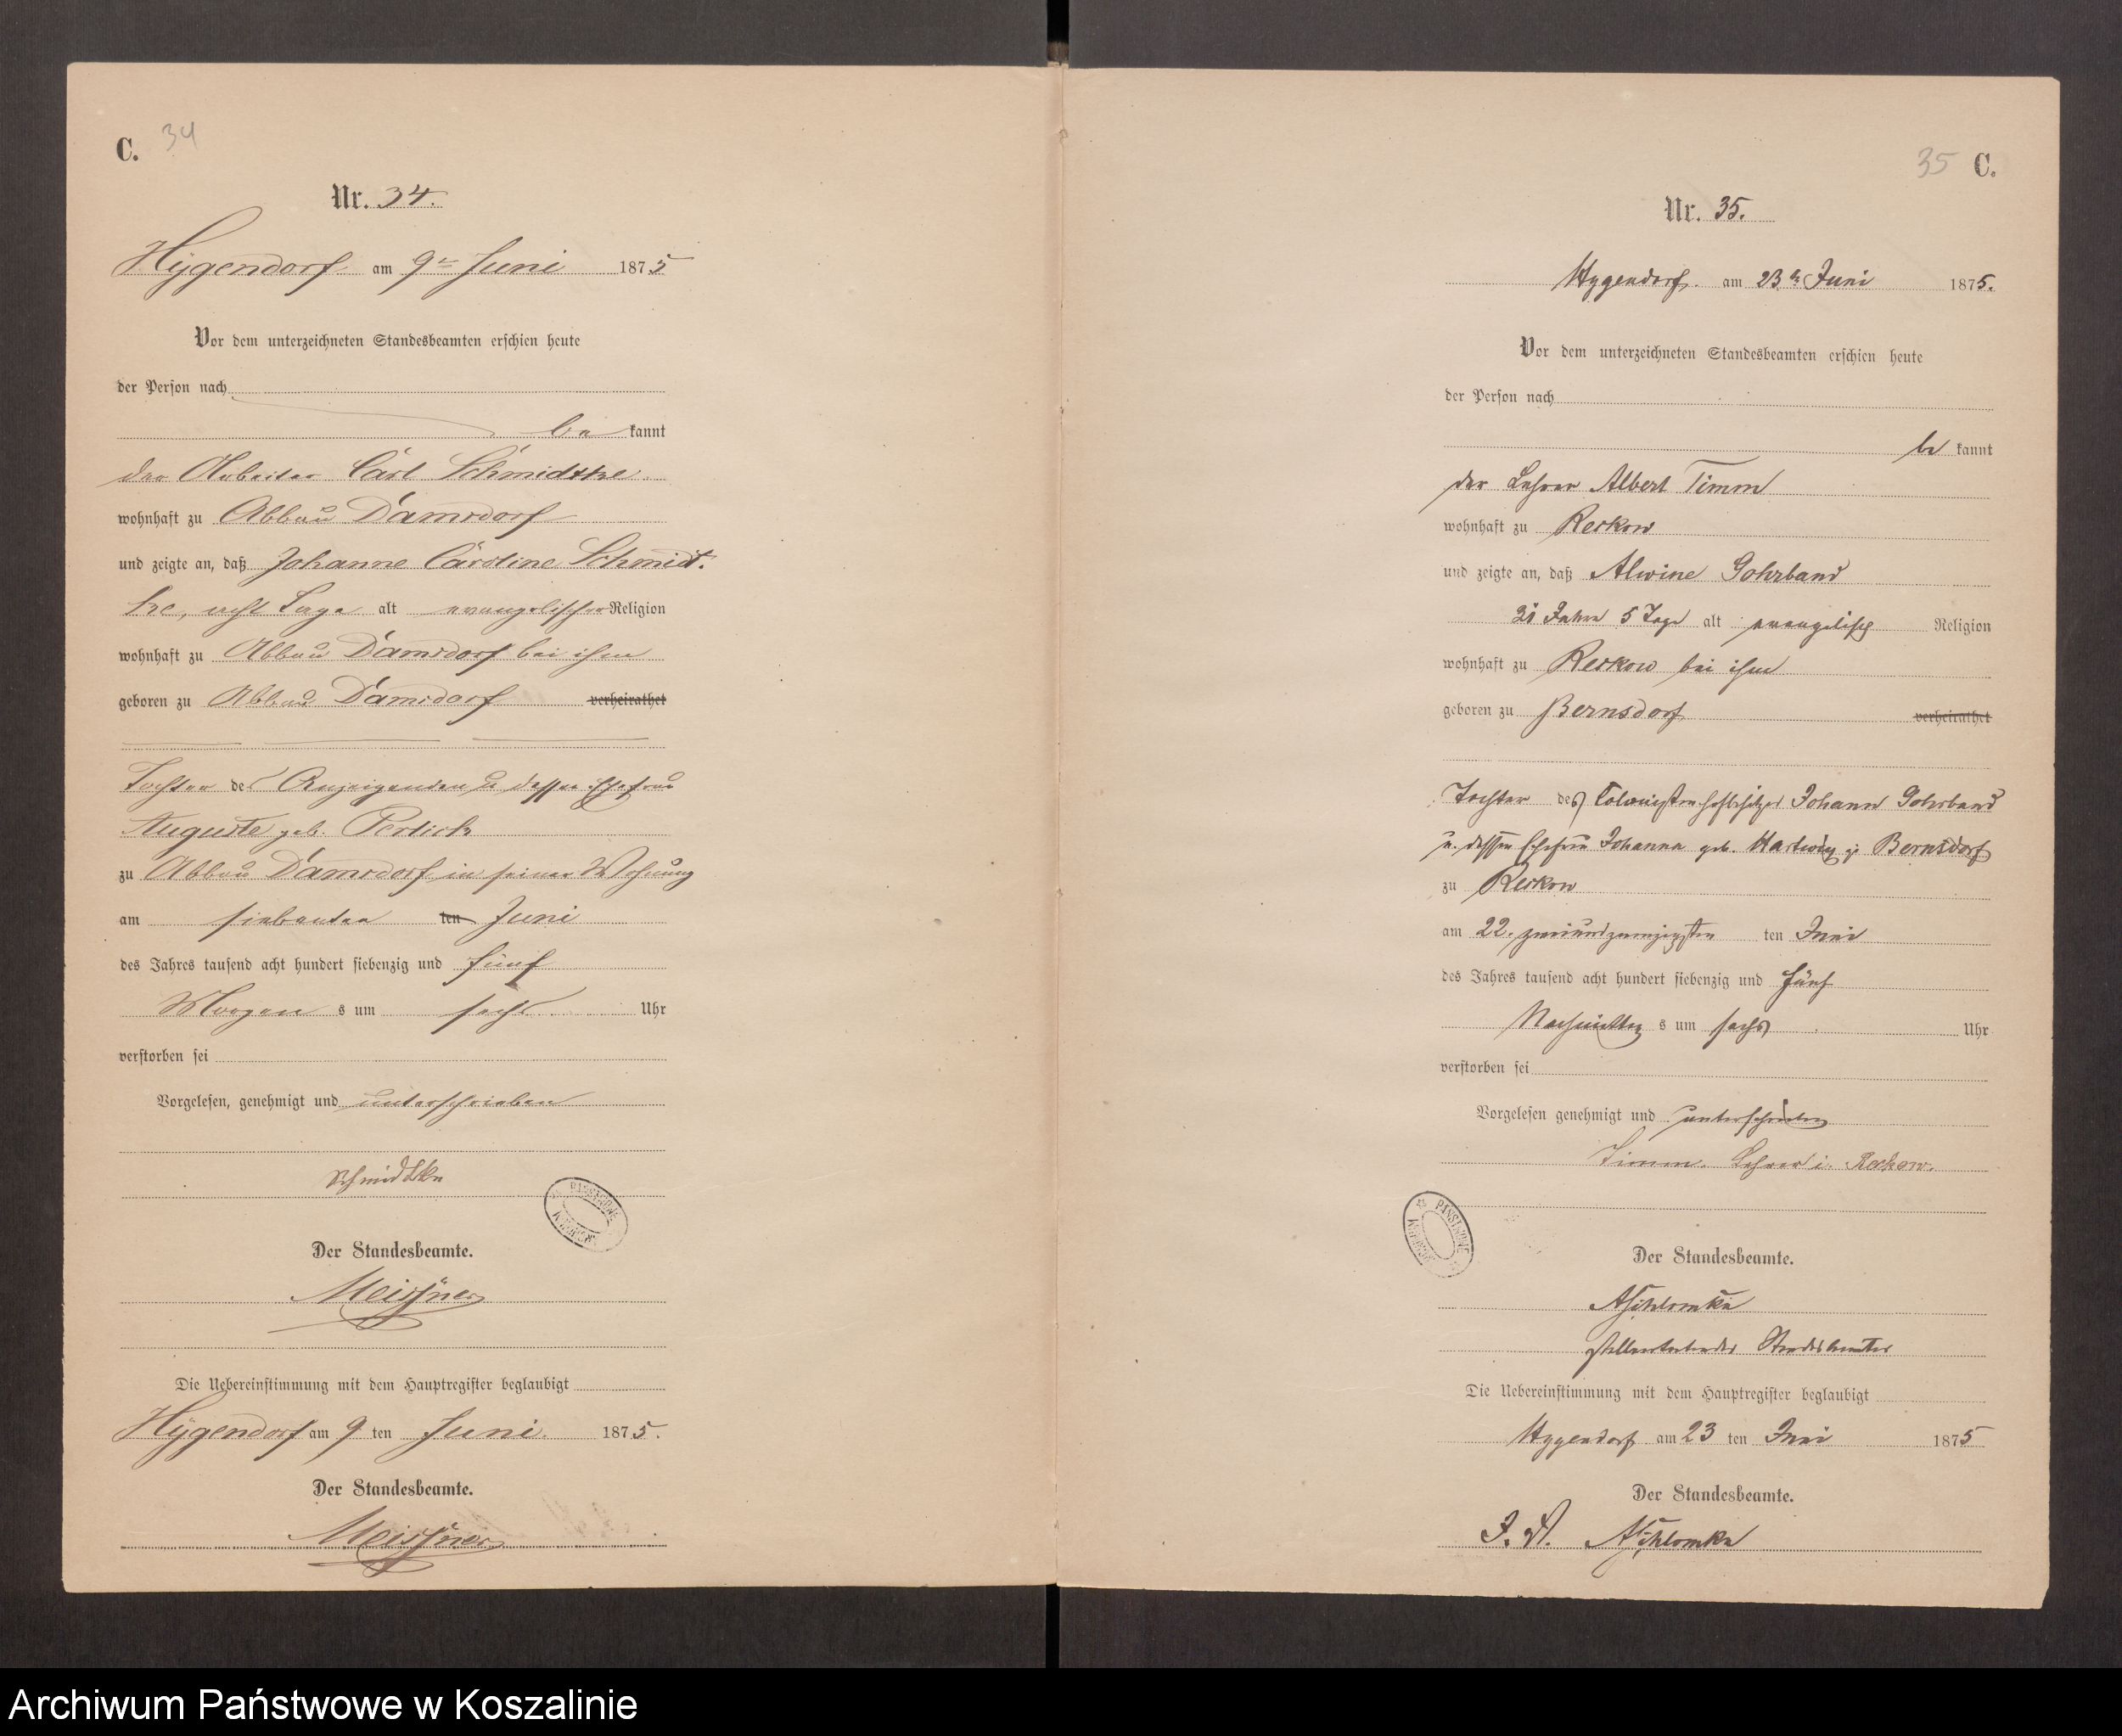 C. 34
Nr. 34.
Hygendorf am 9ten Juni 1875
Vor dem unterzeichneten Standesbeamten erschien heute
der Person nach
be kannt
der Arbeiter Carl Schmidtke
wohnhaft zu Abbau Damsdorf
und zeigte an, daß Johanne Caroline Schmidt-
ke, acht Tage alt evangelischer Religion
wohnhaft zu Abbau Damsdorf bei ihm
geboren zu Abbau Damsdorf verheirathet
Tochter des Anzeigenden u dessen Ehefrau
Auguste geb. Perlick
zu Abbau Damsdorf in seiner Wohnung
am siebenten ten Juni
des Jahres tausend acht hundert siebenzig und fünf
Morgen s um sechs Uhr
verstorben sei
Vorgelesen, genehmigt und unterschrieben
Schmidtke
Der Standesbeamte.
Meissner
Die Uebereinstimmung mit dem Hauptregister beglaubigt
Hygendorf am 9 ten Juni. 1875.
Der Standesbeamte.
Meissner
35 C.
Nr. 35.
Hygendorf. am 23ten Juni 1875.
Vor dem unterzeichneten Standesbeamten erschien heute
der Person nach
be kannt
der Lehrer Albert Timm
wohnhaft zu Reckow
und zeigte an, daß Alwine Gohrband
21 Jahre 5 Tage alt evangelisch Religion
wohnhaft zu Reckow bei ihm
geboren zu Bernsdorf verheirathet
Tochter des Colonistenhofbesitzer Johann Gohrband
u. dessen Ehefrau Johanna geb. Hartwig z. Bernsdorf
zu Reckow
am 22. zweiundzwanzigsten ten Juni
des Jahres tausend acht hundert siebenzig und fünf
Nachmittag s um sechs Uhr
verstorben sei
Vorgelesen genehmigt und unterschrieben
Timm. Lehrer i. Reckow.
Der Standesbeamte.
stellvertretender Standesbeamter
Die Uebereinstimmung mit dem Hauptregister beglaubigt
Hygendorf am 23 ten Juni 1875
Der Standesbeamte.
J. V.
Archiwum Państwowe w Koszalinie